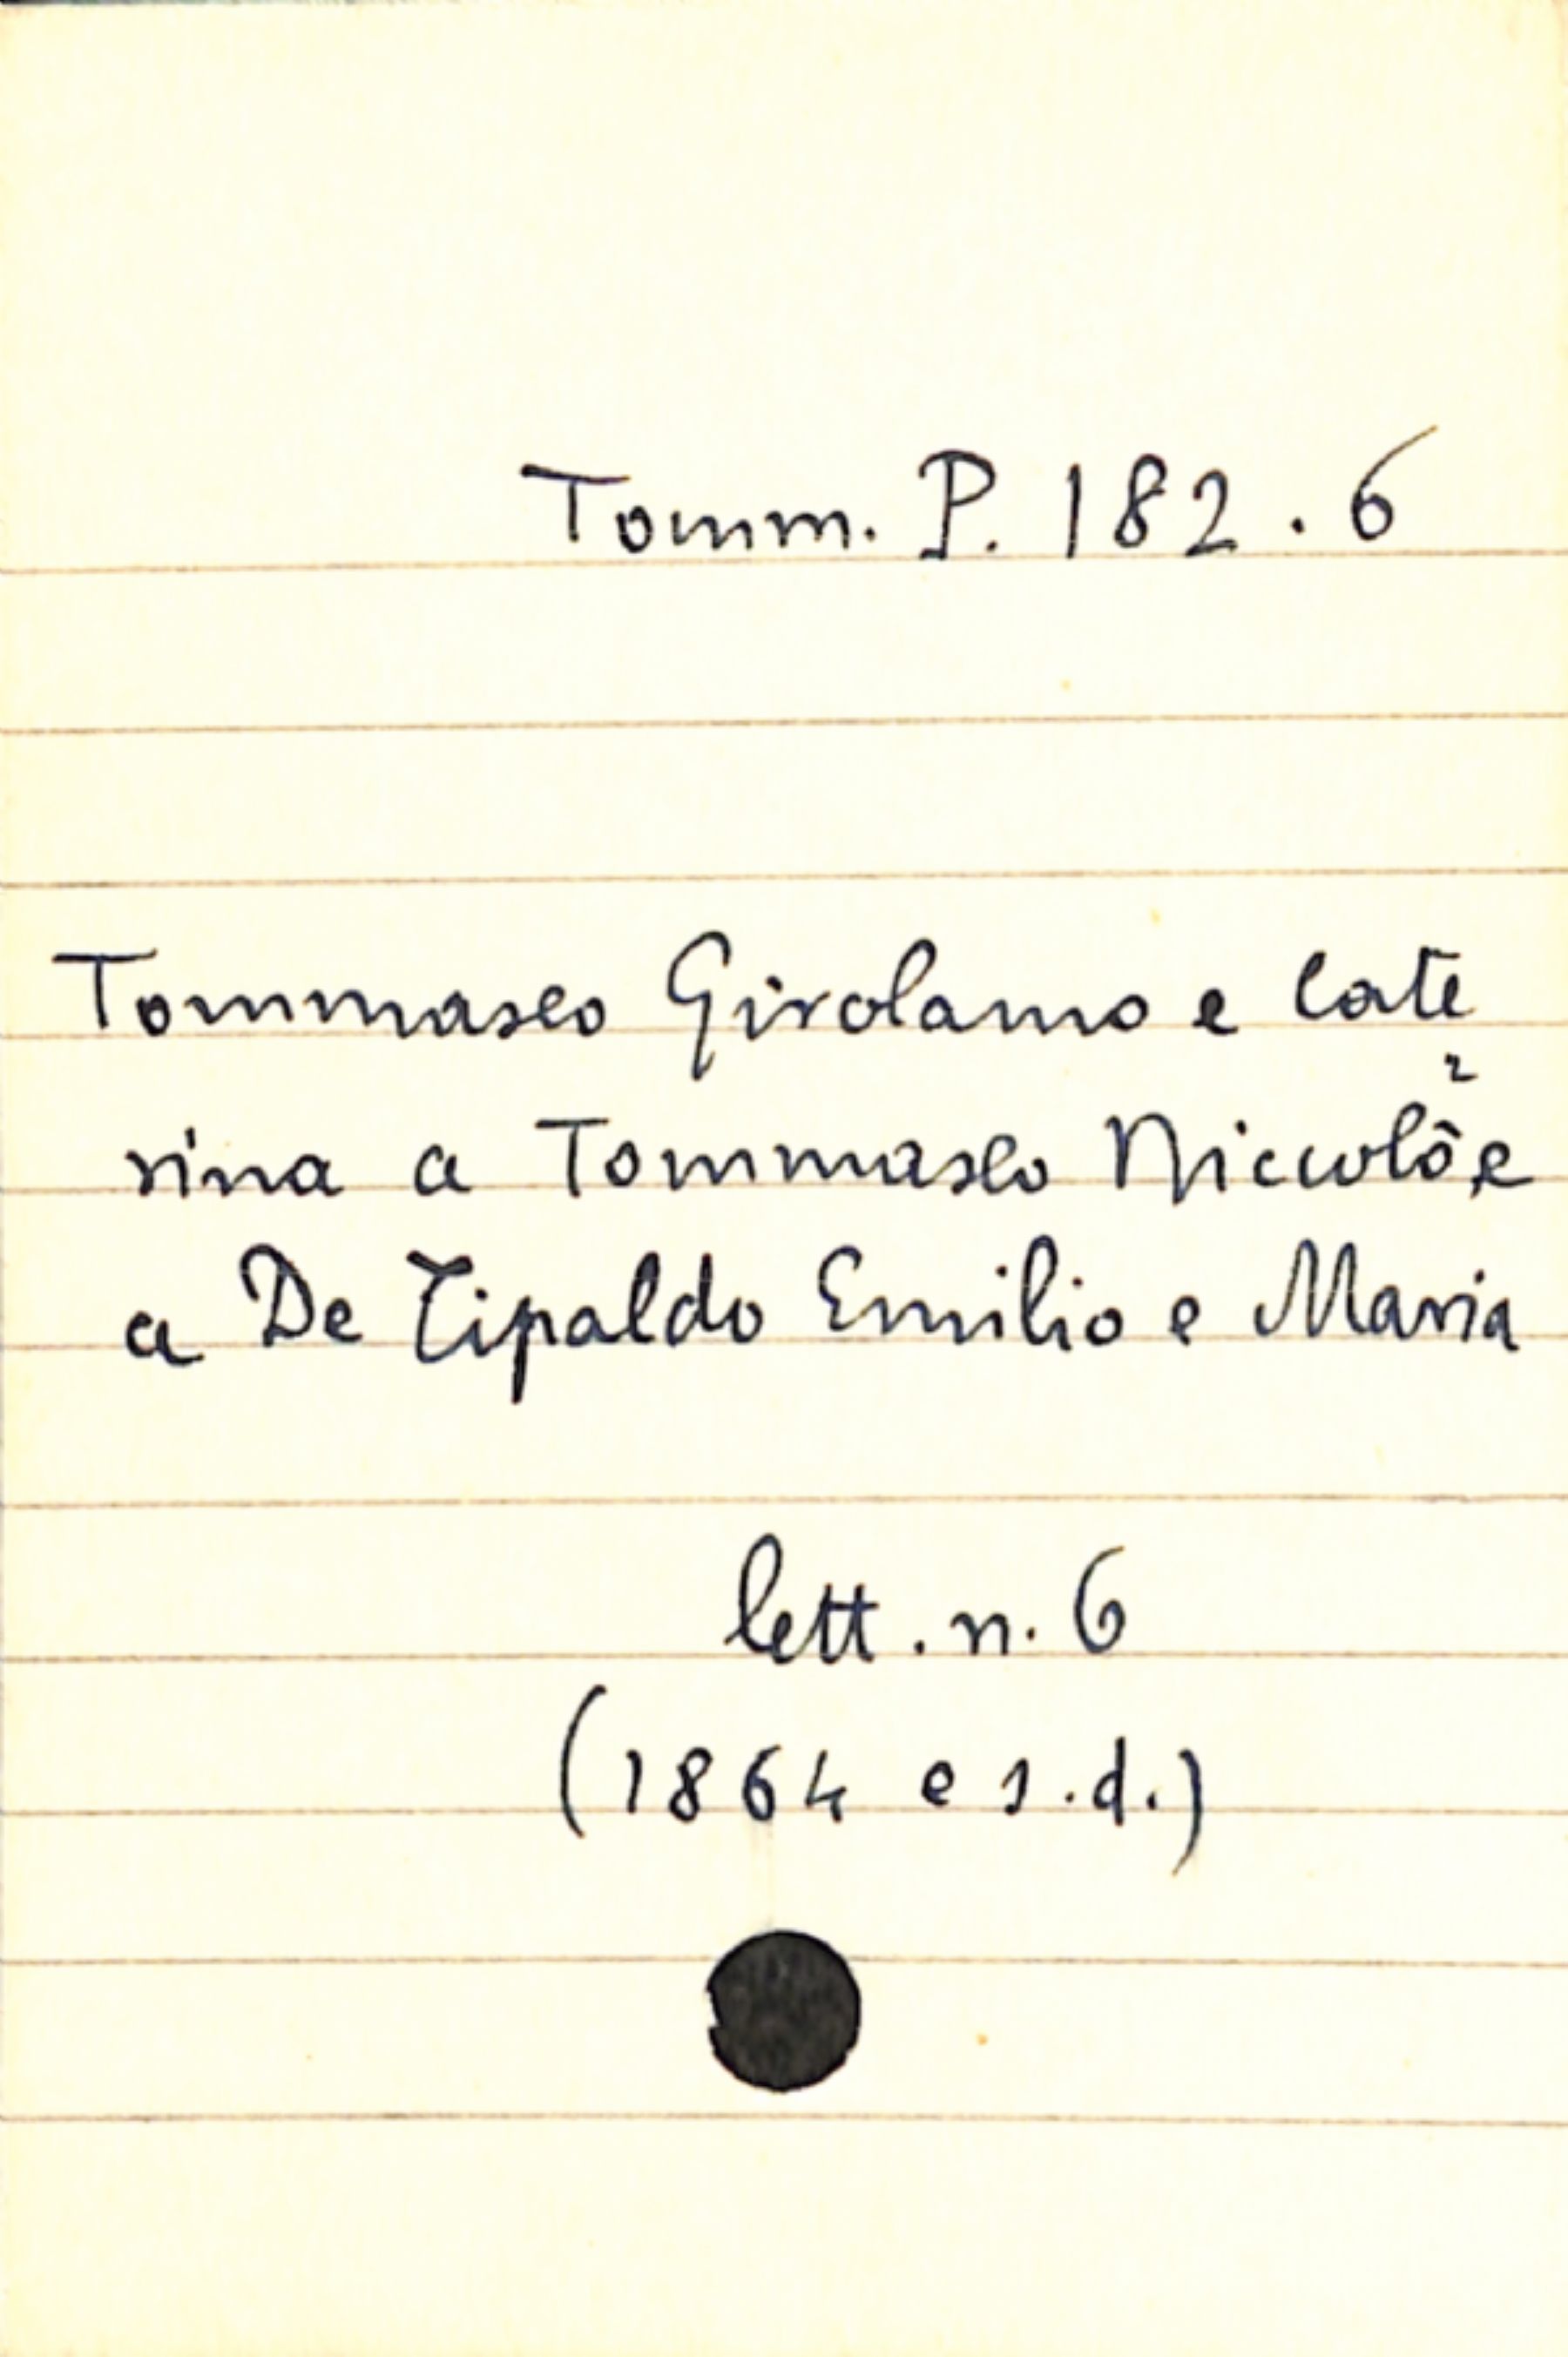 Tomm. P. 182.6
Tommaseo Girolamo e Cate
rina a Tommaseo Niccolò e
a De Tipaldo Emilio e Maria
lett. n. 6
(1864 e s.d.)